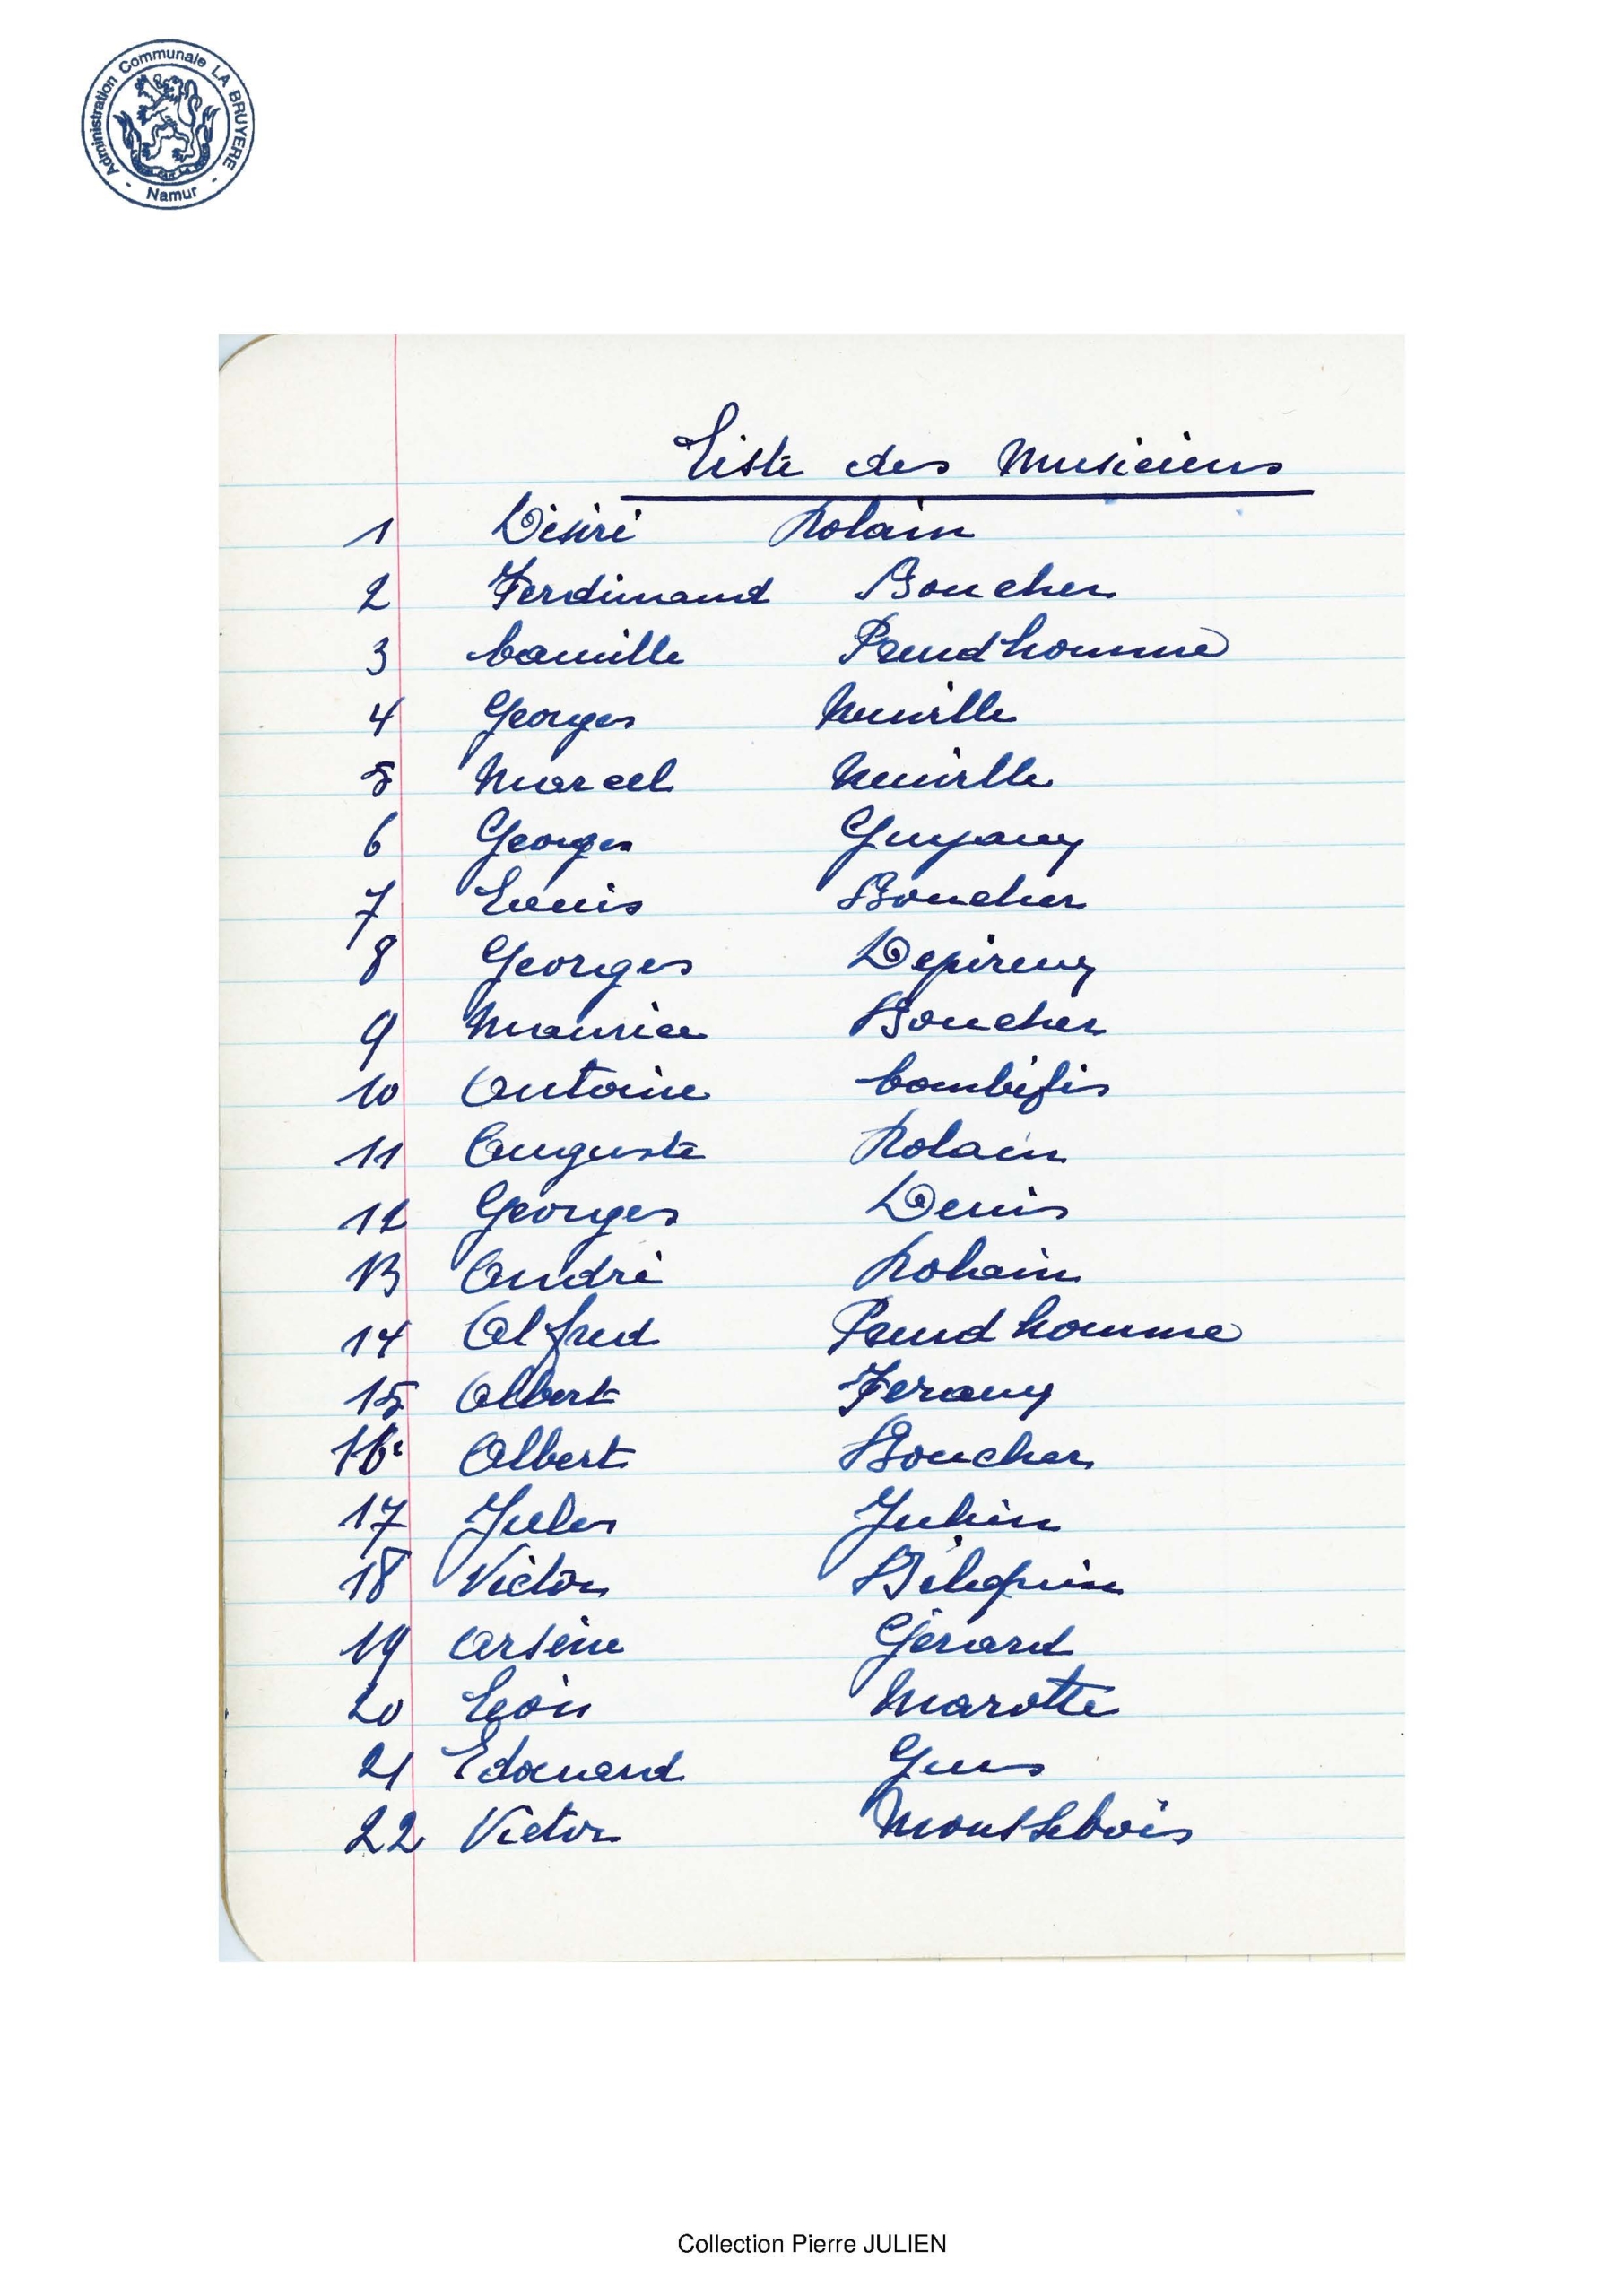 Administration Communale LA BRUYERE - Namur -
Liste des Musiciens
1 Désiré Rolain
2 Ferdinand Boucher
3 Camille Prud'homme
4 Georges Neuville
5 Marcel Neuville
6 Georges
7 Louis Boucher
8 Georges Depireux
9 Maurice Boucher
10 Antoine Combéfis
11 Auguste Rolain
12 Georges Denis
13 André Rolain
14 Alfred Prudhomme
15 Albert
16 Albert Boucher
17 Jules Julien
18 Victor
19 Arsène Gérard
20 Léon Marotte
21 Edouard
22 Victor Moussebois
Collection Pierre JULIEN